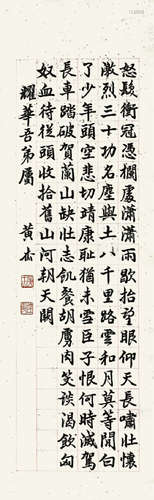 怒髮衝冠憑欄處瀟瀟雨歇抬望眼仰天長嘯壯懷
激烈三十功名塵與土八千里路雲和月莫等閒白
了少年頭空悲切靖康恥猶未雪臣子恨何時滅駕
長車踏破賀蘭山缺壯志飢餐胡虜肉笑談渴飲匈
奴血待從頭收拾舊山河朝天闕
耀華吾弟屬 黃杰